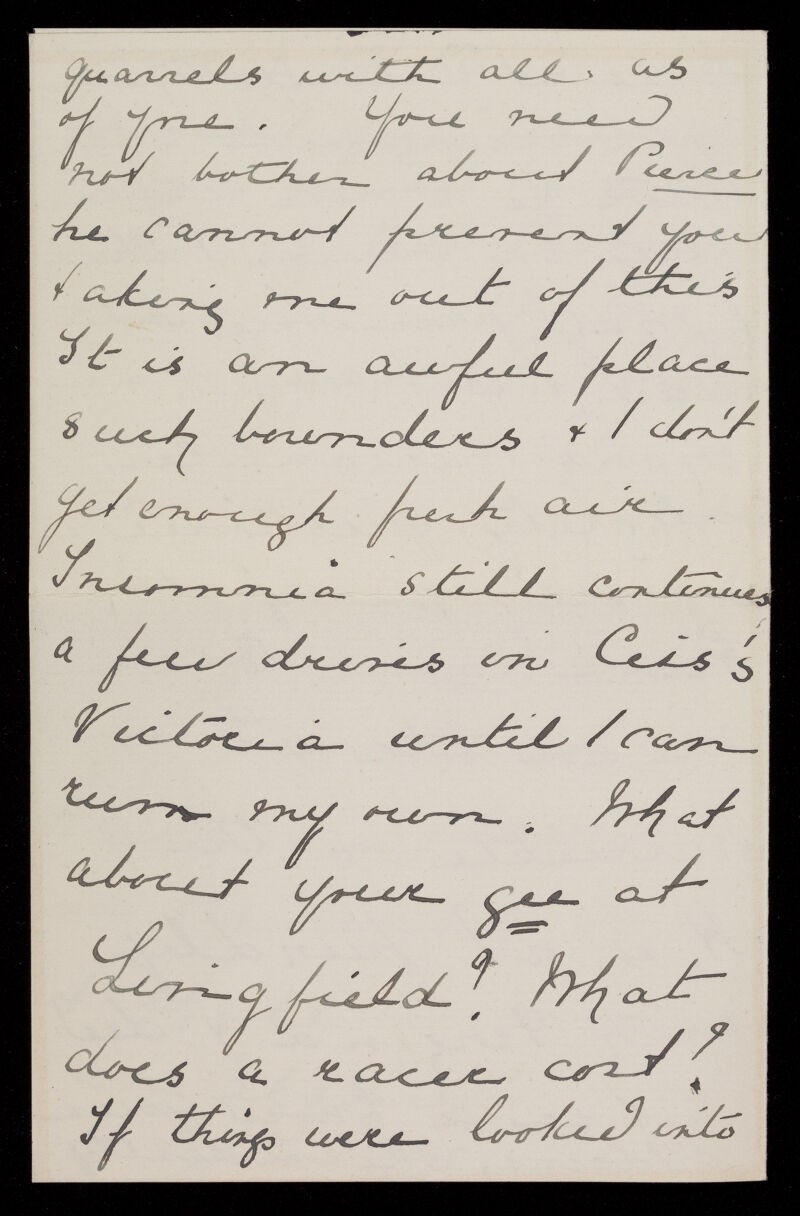 quarrels with all. as
of yore. You need
not bother about Pierce
he cannot prevent you
taking me out of this
It is an awful place
such bounders & I don't
get enough fresh air.
Insomnia still continues
a few drives in Ciss's
Victoria until I can
run my own. What
about your gee at
Lingfield? What
does a racer cost?
If things were looked into